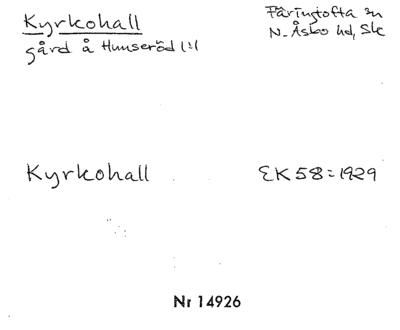 Kyrkohall
Färingtofta sn
gård å Hunseröd 1:1
N. Åsbo hd, Sk
Kyrkohall
EK 58 = 1929
Nr 14926